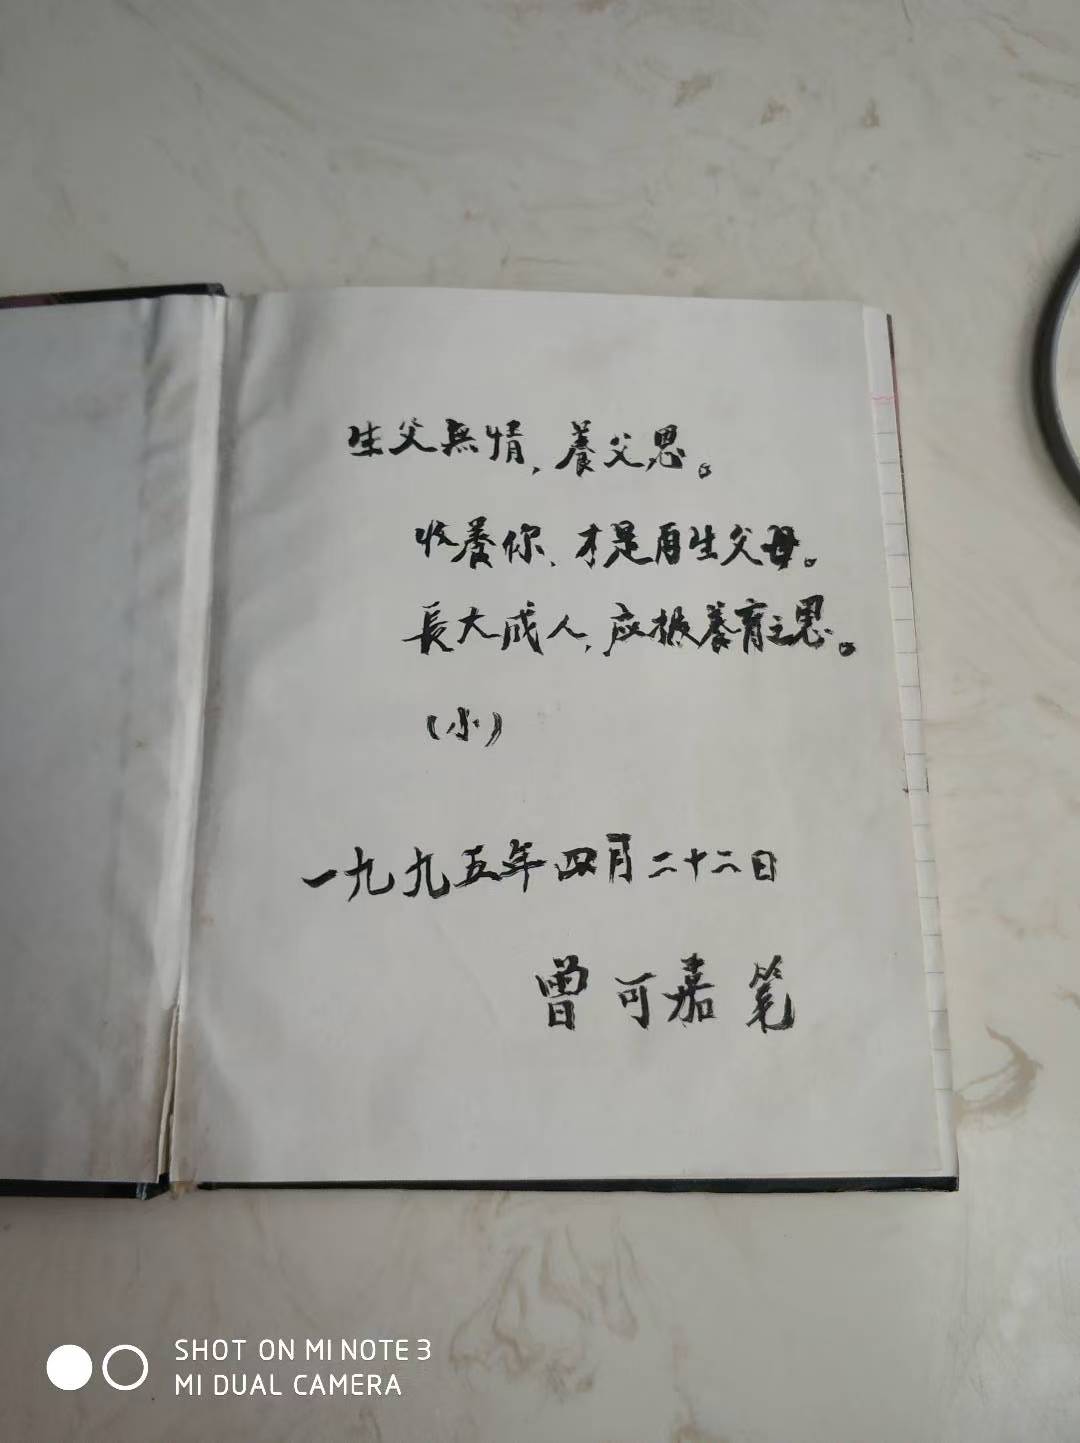 生父無情，養父恩。
收養你，才是再生父母。
長大成人，应报養育之恩。
（小）
一九九五年四月二十二日
曾可嘉 笔
SHOT ON MI NOTE 3
MI DUAL CAMERA